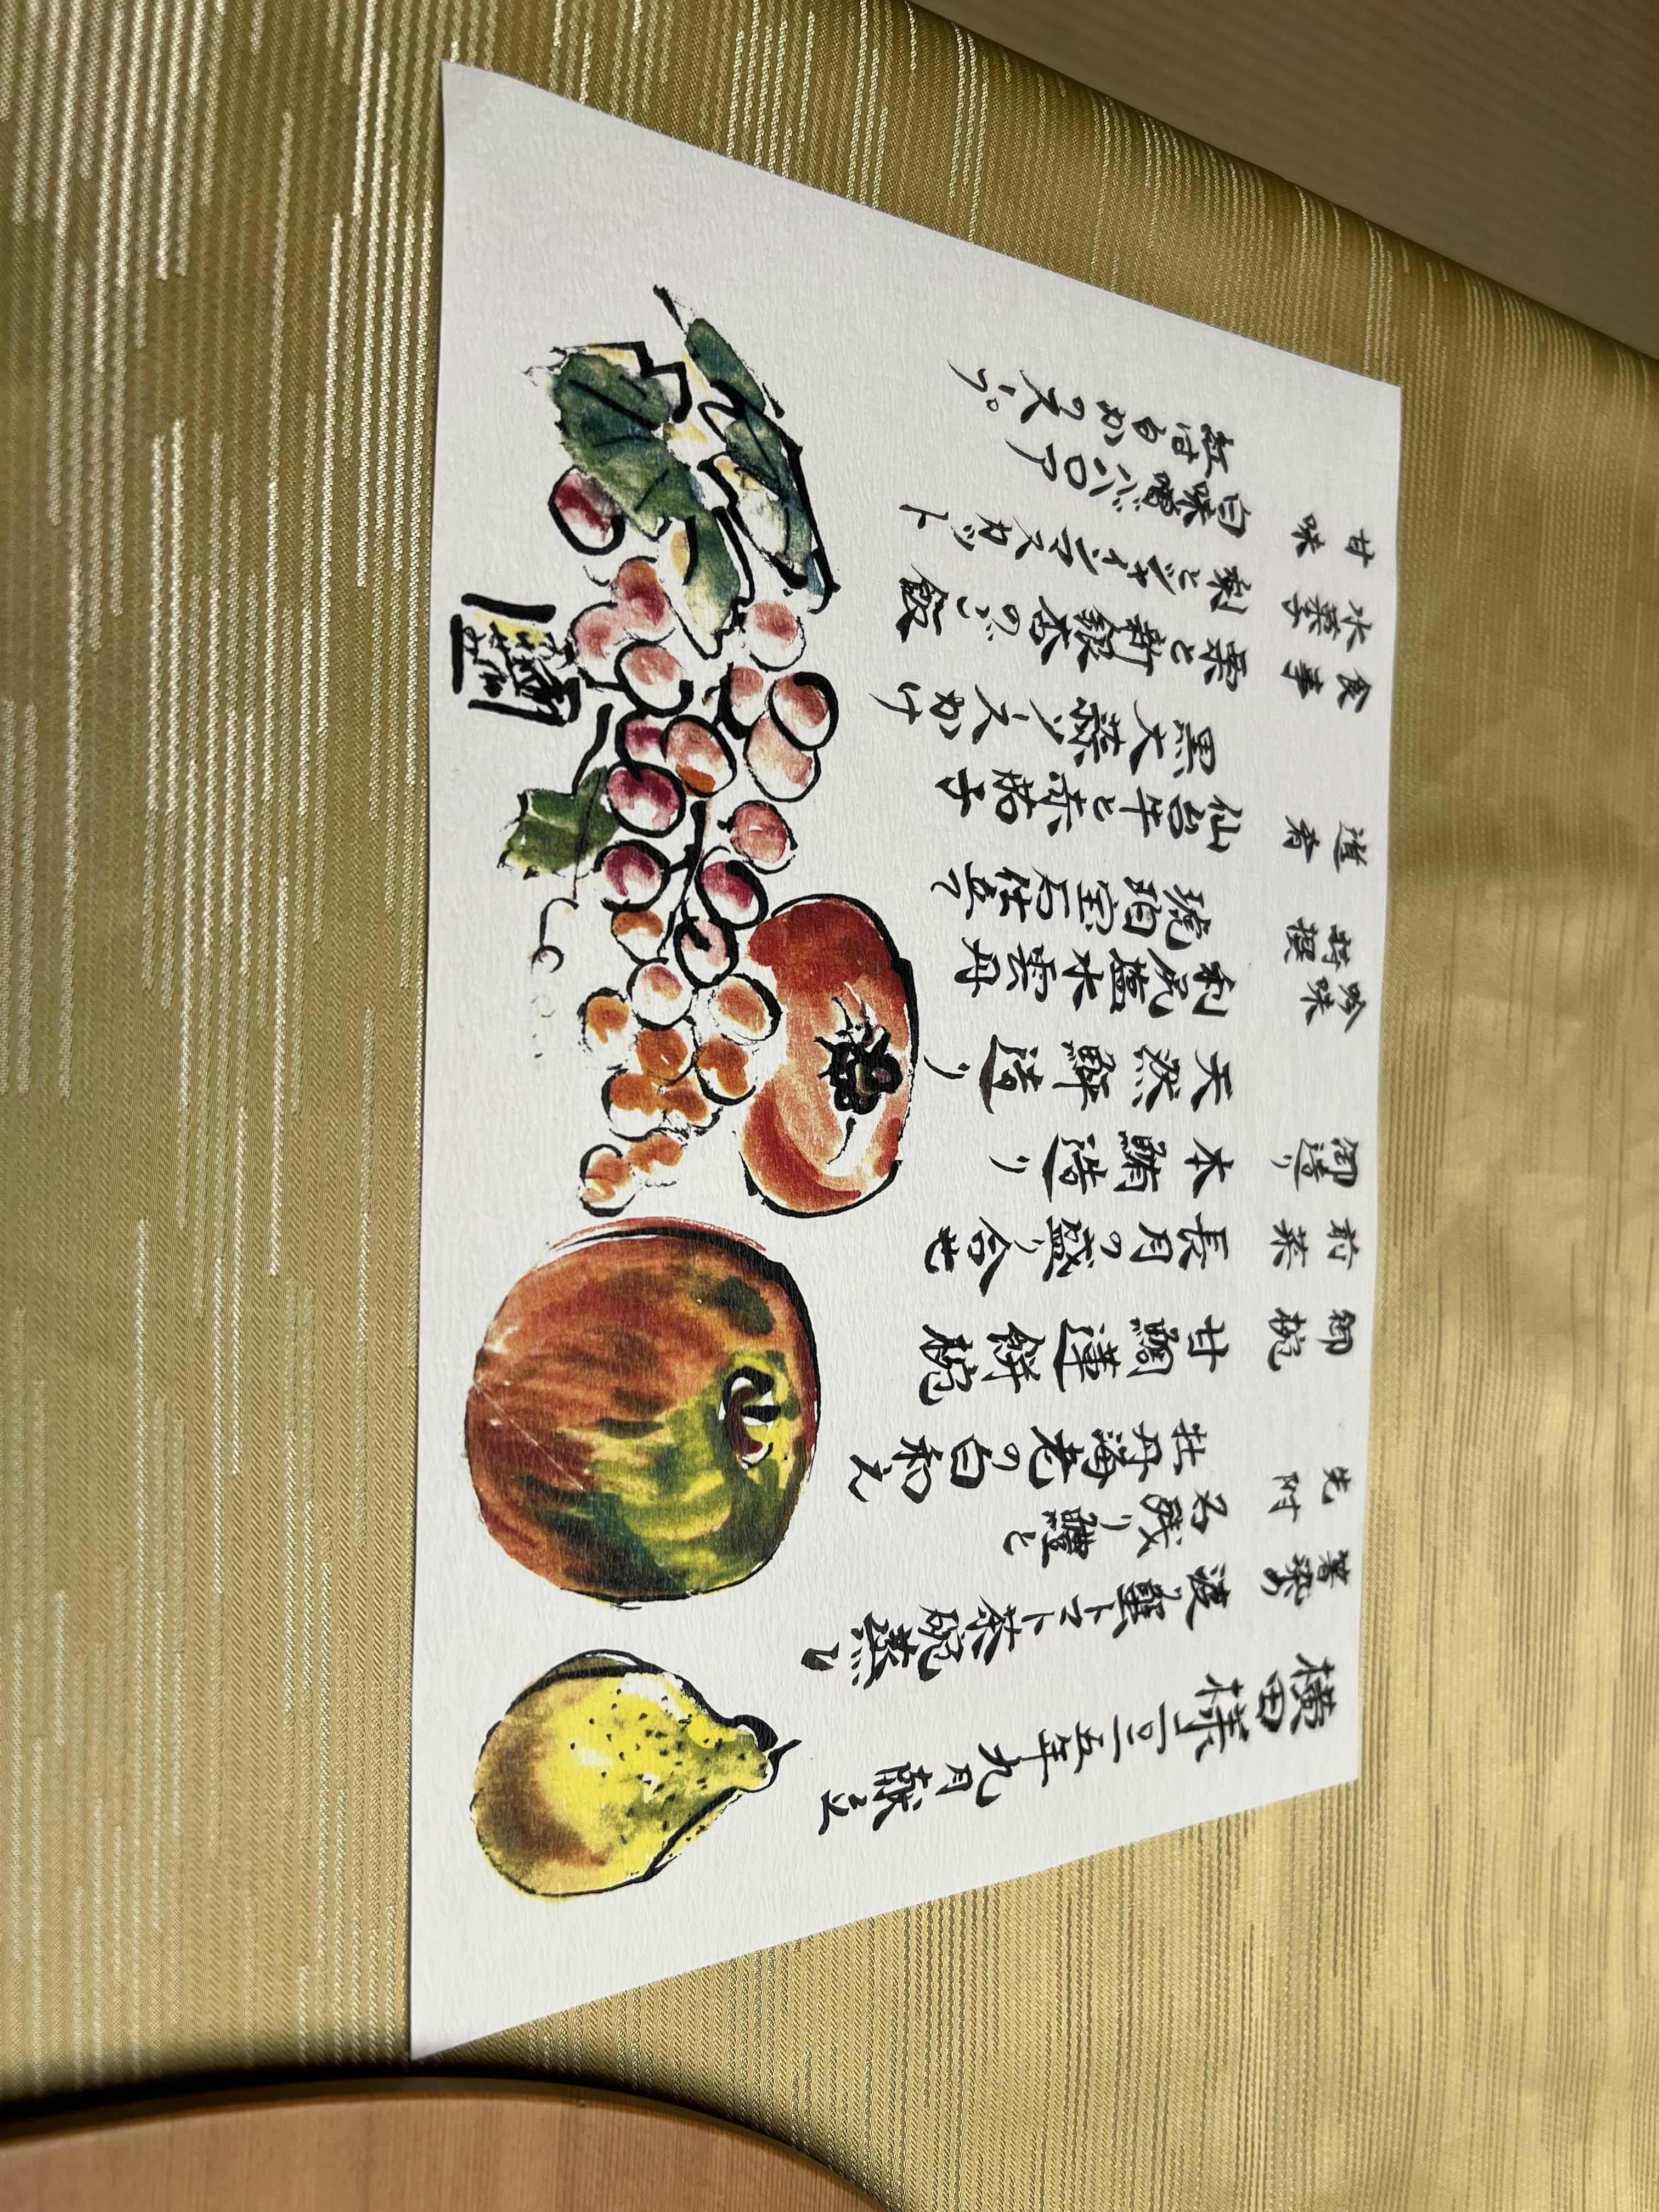 横田様
二〇二五年九月献立
箸染め 渡り蟹トマト茶碗蒸し
先附 名残り鱧と
牡丹海老の白和え
御椀 甘鯛蓮餅椀
前菜 長月の盛り合せ
御造り 本鮪造り
天然鮃造り
特撰吟味 利尻塩水雲丹
琥珀宝石仕立て
進肴 仙台牛と赤茄子
黒大蒜ソースかけ
食事 栗と新銀杏のご飯
水菓子 梨とシャインマスカット
甘味 白味噌ババロア
のスープ